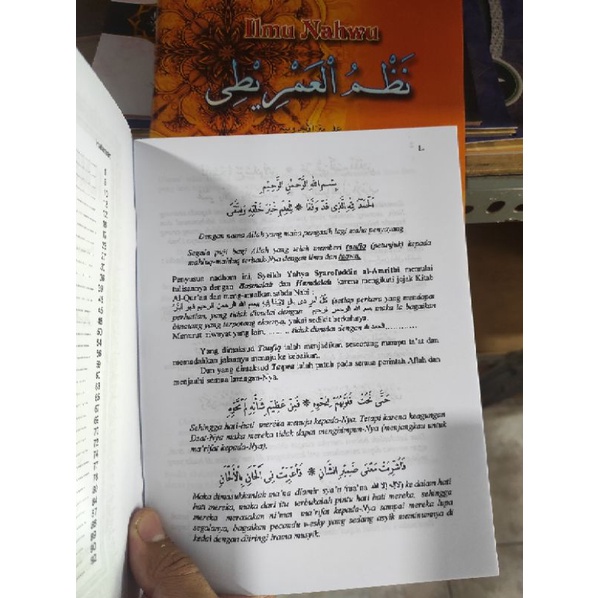 Ilmu Nahwu
نَظْمُ الْعَمْرِيْطِى
بِسْمِ اللهِ الرَّحْمٰنِ الرَّحِيْمِ
اَلْحَمْدُ لِلّٰهِ الَّذِى قَدْ وَفَّقَا * لِلْعِلْمِ خَيْرَ خَلْقِهِ وَلِلتُّقَى
Dengan nama Allah yang maha pengasih lagi maha penyayang
Segala puji bagi Allah yang telah memberi taufiq (petunjuk) kepada
makhluq-makhluq terbaik-Nya dengan ilmu dan taqwa.
Penyusun nadhom ini, Syeikh Yahya Syarofuddin al-Amrithi memulai
tulisannya dengan Basmalah dan Hamdalah karena mengikuti jejak Kitab
Al-Qur'an dan mengamalkan sabda Nabi :
كُلُّ اَمْرٍ ذِى بَالٍ لَايُبْدَأُ فِيْهِ بِبِسْمِ اللهِ الرحمن الرحيم فهو ابتر (setiap perkara yang mendapat
perhatian, yang tidak dimulai dengan بسم الله الرحمن الرحيم maka ia bagaikan
binatang yang terpotong ekornya, yakni sedikit berkahnya.
Menurut riwayat yang lain ....... tidak dimulai dengan الحمد لله..............
Yang dimaksud Taufiq ialah menjadikan seseorang mampu ta'at dan
memudahkan jalannya menuju ke kebaikan.
Dan yang dimaksud Taqwa ialah patuh pada semua perintah Allah dan
menjauhi semua larangan-Nya.
حَتَّى نَحَتْ قُلُوْبُهُمْ لِنَحْوِهِ * فَمِنْ عَظِيْمِ شَأْنِهِ لَمْ تَحْوِهِ
Sehingga hati-hati mereka menuju kepada-Nya. Tetapi karena keagungan
Dzat-Nya maka mereka tidak dapat menghimpun-Nya (menjangkau untuk
ma'rifat kepada-Nya).
فَأُشْرِبَتْ مَعْنَى ضَمِيْرِ الشَّانِ * فَأُعْرِبَتْ فِى الْحَانِ بِالْأَلْحَانِ
Maka dimasukkanlah ma'na dlamir sya'n لااله الا الله ke dalam hati
hati mereka, maka dari itu terbukalah pintu hati mereka, sehingga
mereka merasakan ni'mat ma'rifat kepada-Nya sampai mereka lupa
segalanya, bagaikan pecandu wesky yang sedang asyik meminumnya di
kedai dengan diiringi irama musyik.